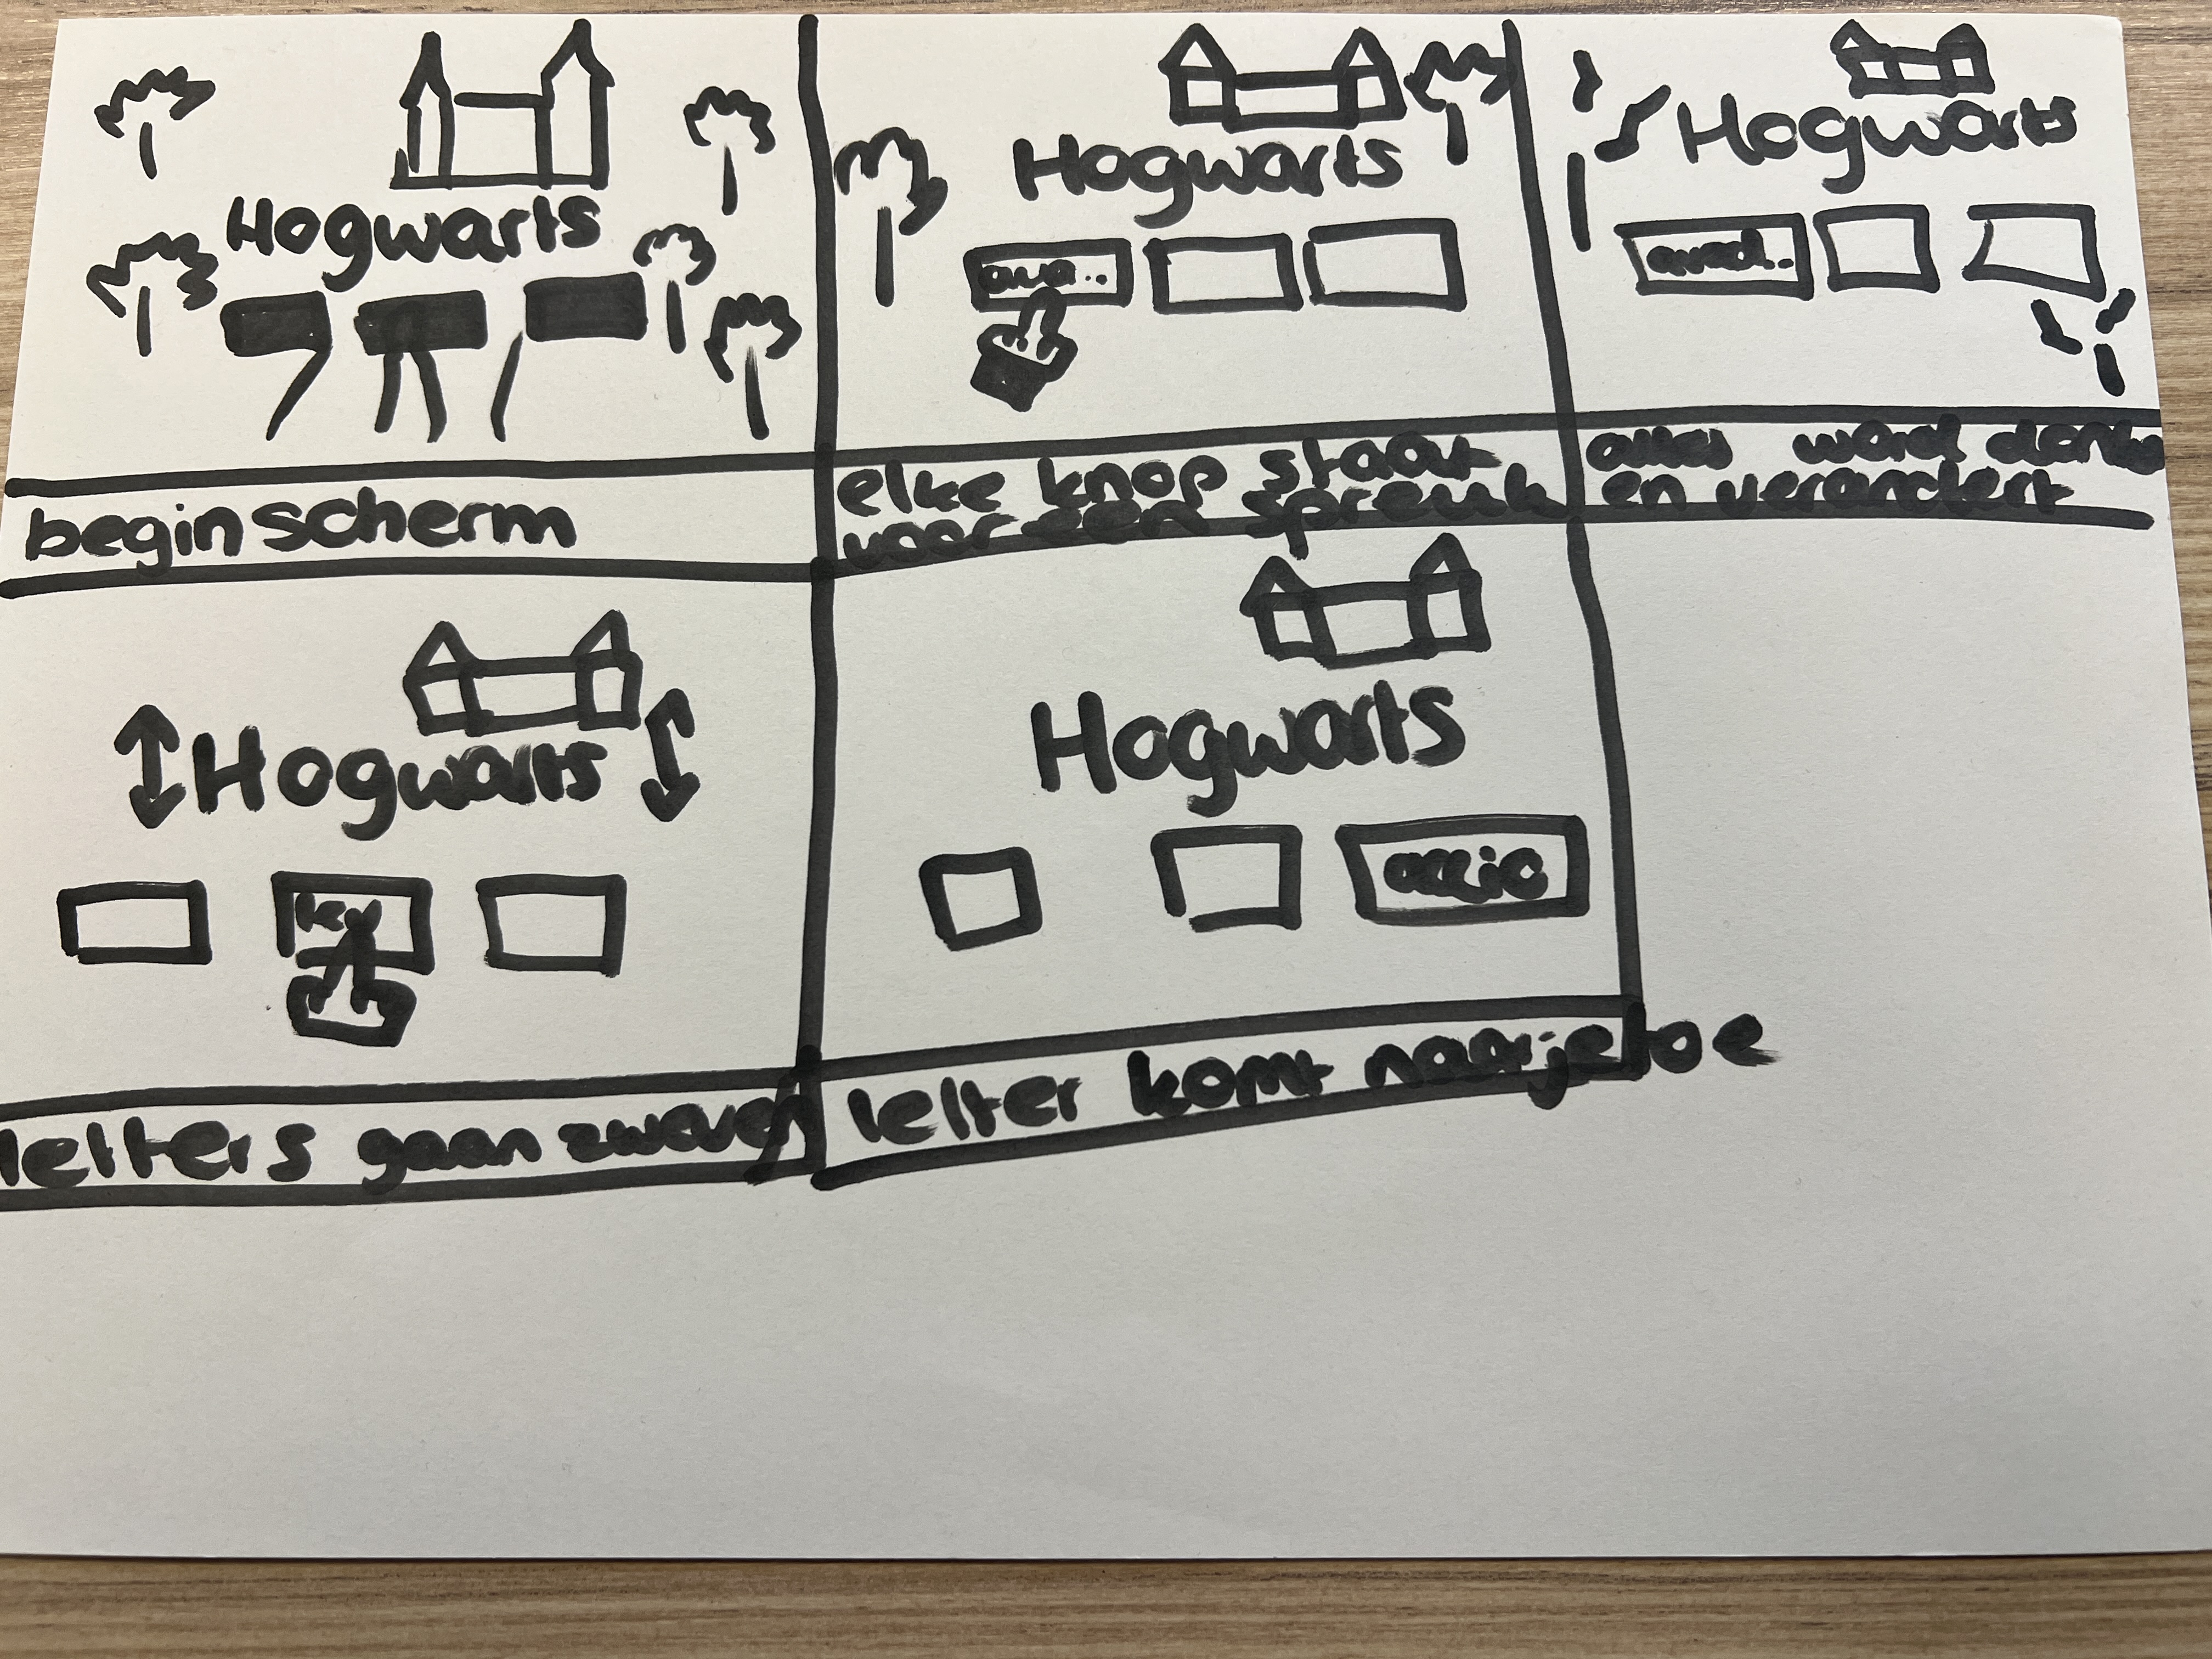 Hogwarts
beginscherm
Hogwarts
ava..
elke knop staat
voor een spreuk
Hogwarts
avad..
alles word donker
en verandert
Hogwarts
letters gaan zweven
Hogwarts
accio
letter komt naar je toe